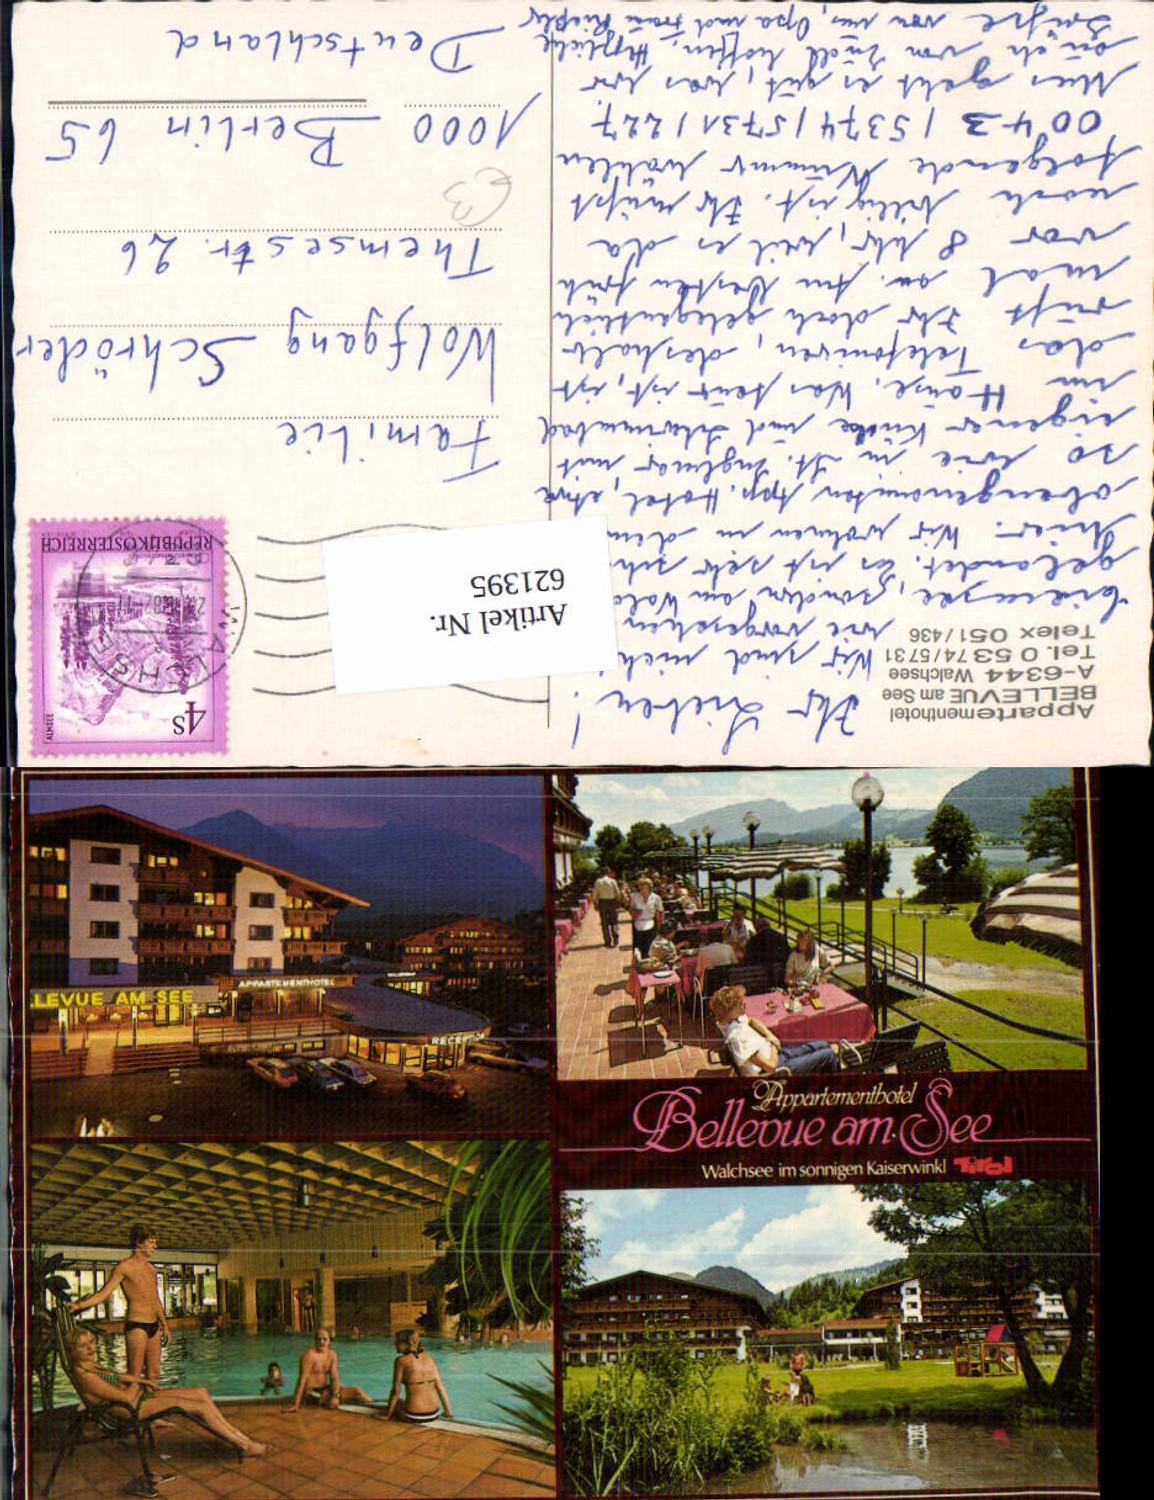 Appartementhotel
BELLEVUE am See
A-6344 Walchsee
Tel. 0 53 74/5731
Telex 051/436
Ihr Lieben!
Wir sind nicht
wie vorgesehen
am Wald
gelandet. Es ist sehr
hier. Wir wohnen in dem
obengenannten App. Hotel, etwa
so wie in St. Englmar mit
eigener Küche und Schwimmbad
im Hause. Was teuer ist, ist
das Telefonieren, deshalb
ruft Ihr doch gelegentlich
mal an. Am besten früh
vor 8 Uhr, weil es da
noch billig ist. Ihr müßt
folgende Nummer wählen
0043 / 5374 / 5731 / 227.
Uns geht es gut, was wir
auch von Euch hoffen. Herzliche
Grüße von uns, Opa und Frau
REPUBLIK ÖSTERREICH
4S
ALMSEE
WALCHSEE
Artikel Nr.
621395
Familie
Wolfgang Schröder
Themsestr. 26
1000 Berlin 65
Deutschland
€3
LEVUE AM SEE
APPARTEMENTHOTEL
RECEPTION
Appartementhotel
Bellevue am See
Walchsee im sonnigen Kaiserwinkl Tirol